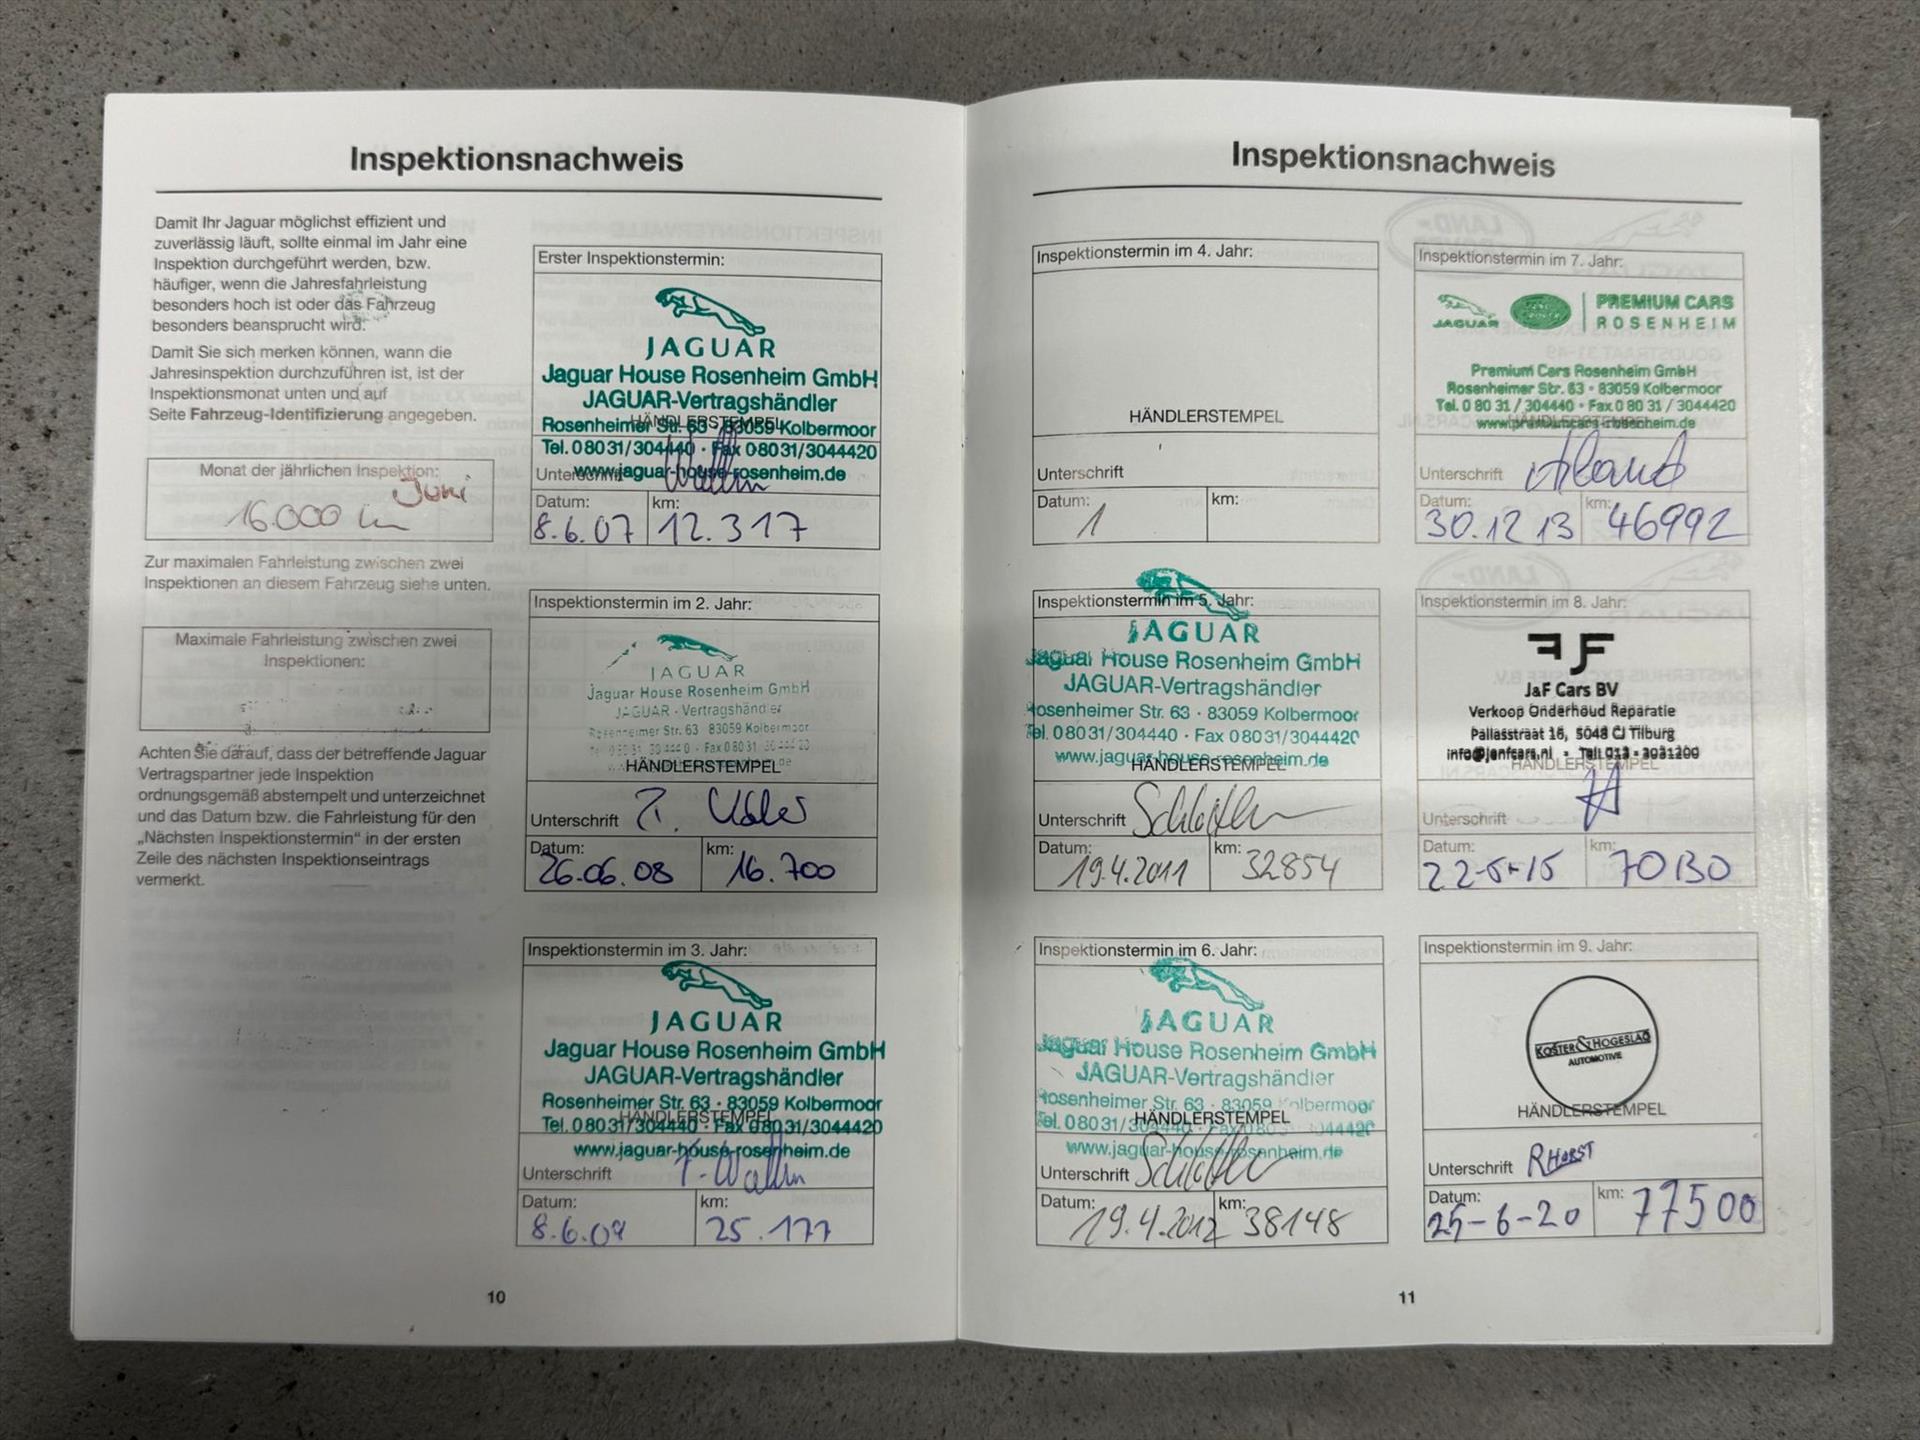 Inspektionsnachweis
Damit Ihr Jaguar möglichst effizient und
zuverlässig läuft, sollte einmal im Jahr eine
Inspektion durchgeführt werden, bzw.
häufiger, wenn die Jahresfahrleistung
besonders hoch ist oder das Fahrzeug
besonders beansprucht wird.
Damit Sie sich merken können, wann die
Jahresinspektion durchzuführen ist, ist der
Inspektionsmonat unten und auf
Seite Fahrzeug-Identifizierung angegeben.
Monat der jährlichen Inspektion:
Juni
16.000 km
Zur maximalen Fahrleistung zwischen zwei
Inspektionen an diesem Fahrzeug siehe unten.
Maximale Fahrleistung zwischen zwei
Inspektionen:
Achten Sie darauf, dass der betreffende Jaguar
Vertragspartner jede Inspektion
ordnungsgemäß abstempelt und unterzeichnet
und das Datum bzw. die Fahrleistung für den
„Nächsten Inspektionstermin“ in der ersten
Zeile des nächsten Inspektionseintrags
vermerkt.
Erster Inspektionstermin:
JAGUAR
Jaguar House Rosenheim GmbH
JAGUAR-Vertragshändler
HÄNDLERSTEMPEL
Rosenheimer Str. 63 · 83059 Kolbermoor
Tel. 0 80 31/304440 · Fax 0 80 31/3044420
www.jaguar-house-rosenheim.de
Unterschrift
Datum: km:
8.6.07 12.317
Inspektionstermin im 2. Jahr:
JAGUAR
Jaguar House Rosenheim GmbH
JAGUAR - Vertragshändler
Rosenheimer Str. 63 83059 Kolbermoor
HÄNDLERSTEMPEL
Unterschrift
Datum: km:
26.06.08 16.700
Inspektionstermin im 3. Jahr:
JAGUAR
Jaguar House Rosenheim GmbH
JAGUAR-Vertragshändler
Rosenheimer Str. 63 · 83059 Kolbermoor
HÄNDLERSTEMPEL
Tel. 0 80 31/304440 · Fax 0 80 31/3044420
www.jaguar-house-rosenheim.de
Unterschrift
Datum: km:
8.6.09 25.177
10
Inspektionsnachweis
Inspektionstermin im 4. Jahr:
HÄNDLERSTEMPEL
Unterschrift
Datum: km:
1
Inspektionstermin im 5. Jahr:
JAGUAR
Jaguar House Rosenheim GmbH
JAGUAR-Vertragshändler
Rosenheimer Str. 63 · 83059 Kolbermoor
Tel. 0 80 31/304440 · Fax 0 80 31/3044420
www.jaguar-house-rosenheim.de
HÄNDLERSTEMPEL
Unterschrift
Datum: km:
19.4.2011 32854
Inspektionstermin im 6. Jahr:
JAGUAR
Jaguar House Rosenheim GmbH
JAGUAR-Vertragshändler
Rosenheimer Str. 63 · 83059 Kolbermoor
HÄNDLERSTEMPEL
Tel. 0 80 31/304440 · Fax 0 80 31/3044420
www.jaguar-house-rosenheim.de
Unterschrift
Datum: km:
19.4.2012 38148
Inspektionstermin im 7. Jahr:
JAGUAR PREMIUM CARS
ROSENHEIM
Premium Cars Rosenheim GmbH
Rosenheimer Str. 63 · 83059 Kolbermoor
Tel. 0 80 31 / 304440 · Fax 0 80 31 / 3044420
HÄNDLERSTEMPEL
www.premiumcars-rosenheim.de
Unterschrift
Datum: km:
30.12 13 46992
Inspektionstermin im 8. Jahr:
J&F Cars BV
Verkoop Onderhoud Reparatie
Pallasstraat 16, 5048 CJ Tilburg
info@jenfcars.nl - Tel: 013 - 3031200
HÄNDLERSTEMPEL
Unterschrift
Datum: km:
22-5-15 70130
Inspektionstermin im 9. Jahr:
KOSTER & HOGESLAG
AUTOMOTIVE
HÄNDLERSTEMPEL
Unterschrift R HORST
Datum: km:
25-6-20 77500
11